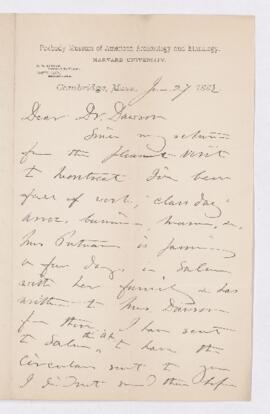 Peabody Museum of American Archæology and Ethnology,
HARVARD UNIVERSITY.
Cambridge, Mass., June 27 1882
Dear Dr. Dawson
Since my return
from the pleasant visit
to Montreal I've been
full of work, "class day"
assoc. business, &c.
Mrs Putnam is passing
a few days in Salem
with her family & has
written to Mrs. Dawson
from there. I have sent
to Salem to have the
circulars sent to you
I did not send them before